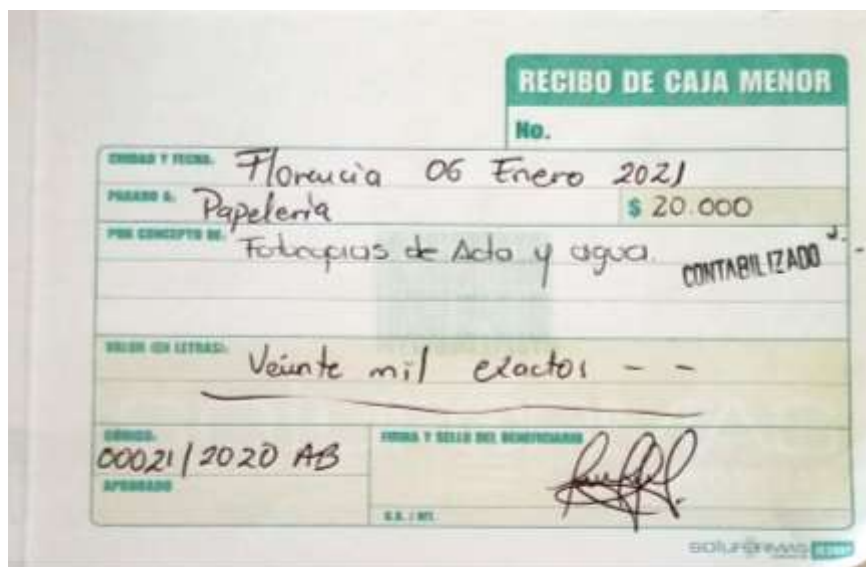 RECIBO DE CAJA MENOR
No.
CIUDAD Y FECHA: Florencia 06 Enero 2021
PAGADO A: Papeleria $ 20.000
POR CONCEPTO DE: Fotocopias de Acta y agua.
CONTABILIZADO
VALOR (EN LETRAS): Veinte mil exactos - -
CÓDIGO: 00021/2020 AB
FIRMA Y SELLO DEL BENEFICIARIO
APROBADO
C.C. / NIT.